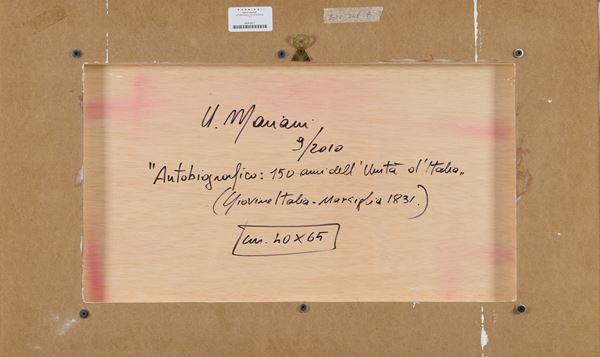 U. Mariani
9/2010
"Autobiografico: 150 anni dell'Unità d'Italia"
(Giovine Italia - Marsiglia 1831.)
cm. 40x65